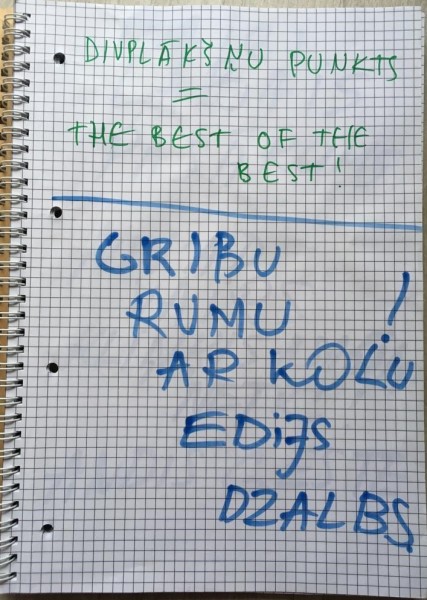 DIVPLĀKŠŅU PUNKTS
=
THE BEST OF THE
BEST!
GRIBU
RUMU !
AR KOLU
EDIJS
DZALBS